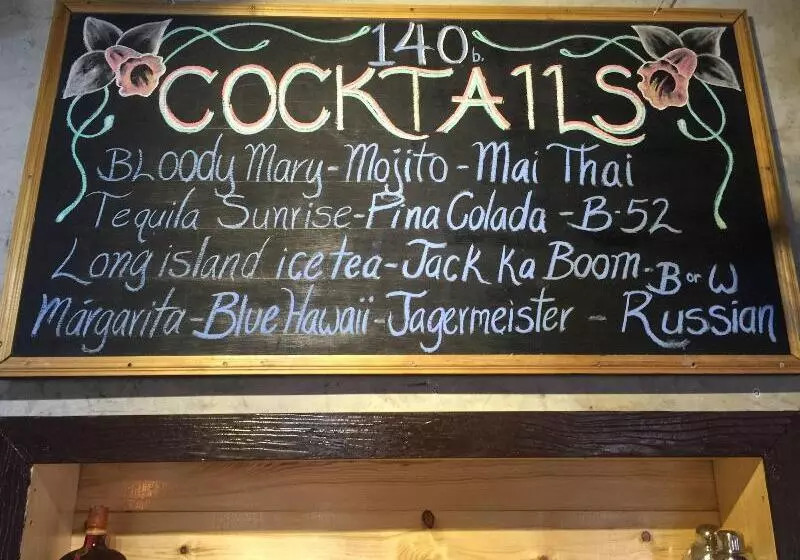 140b.
COCKTAILS
Bloody Mary - Mojito - Mai Thai
Tequila Sunrise - Pina Colada - B-52
Long island ice tea - Jack Ka Boom - B or W
Margarita - Blue Hawaii - Jagermeister - Russian